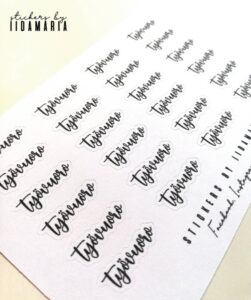 stickers by
IIDAMARIA
työvuoro
työvuoro
työvuoro
työvuoro
työvuoro
työvuoro
työvuoro
työvuoro
työvuoro
työvuoro
työvuoro
työvuoro
työvuoro
työvuoro
työvuoro
työvuoro
työvuoro
työvuoro
työvuoro
työvuoro
työvuoro
työvuoro
työvuoro
työvuoro
STICKERS BY
Facebook